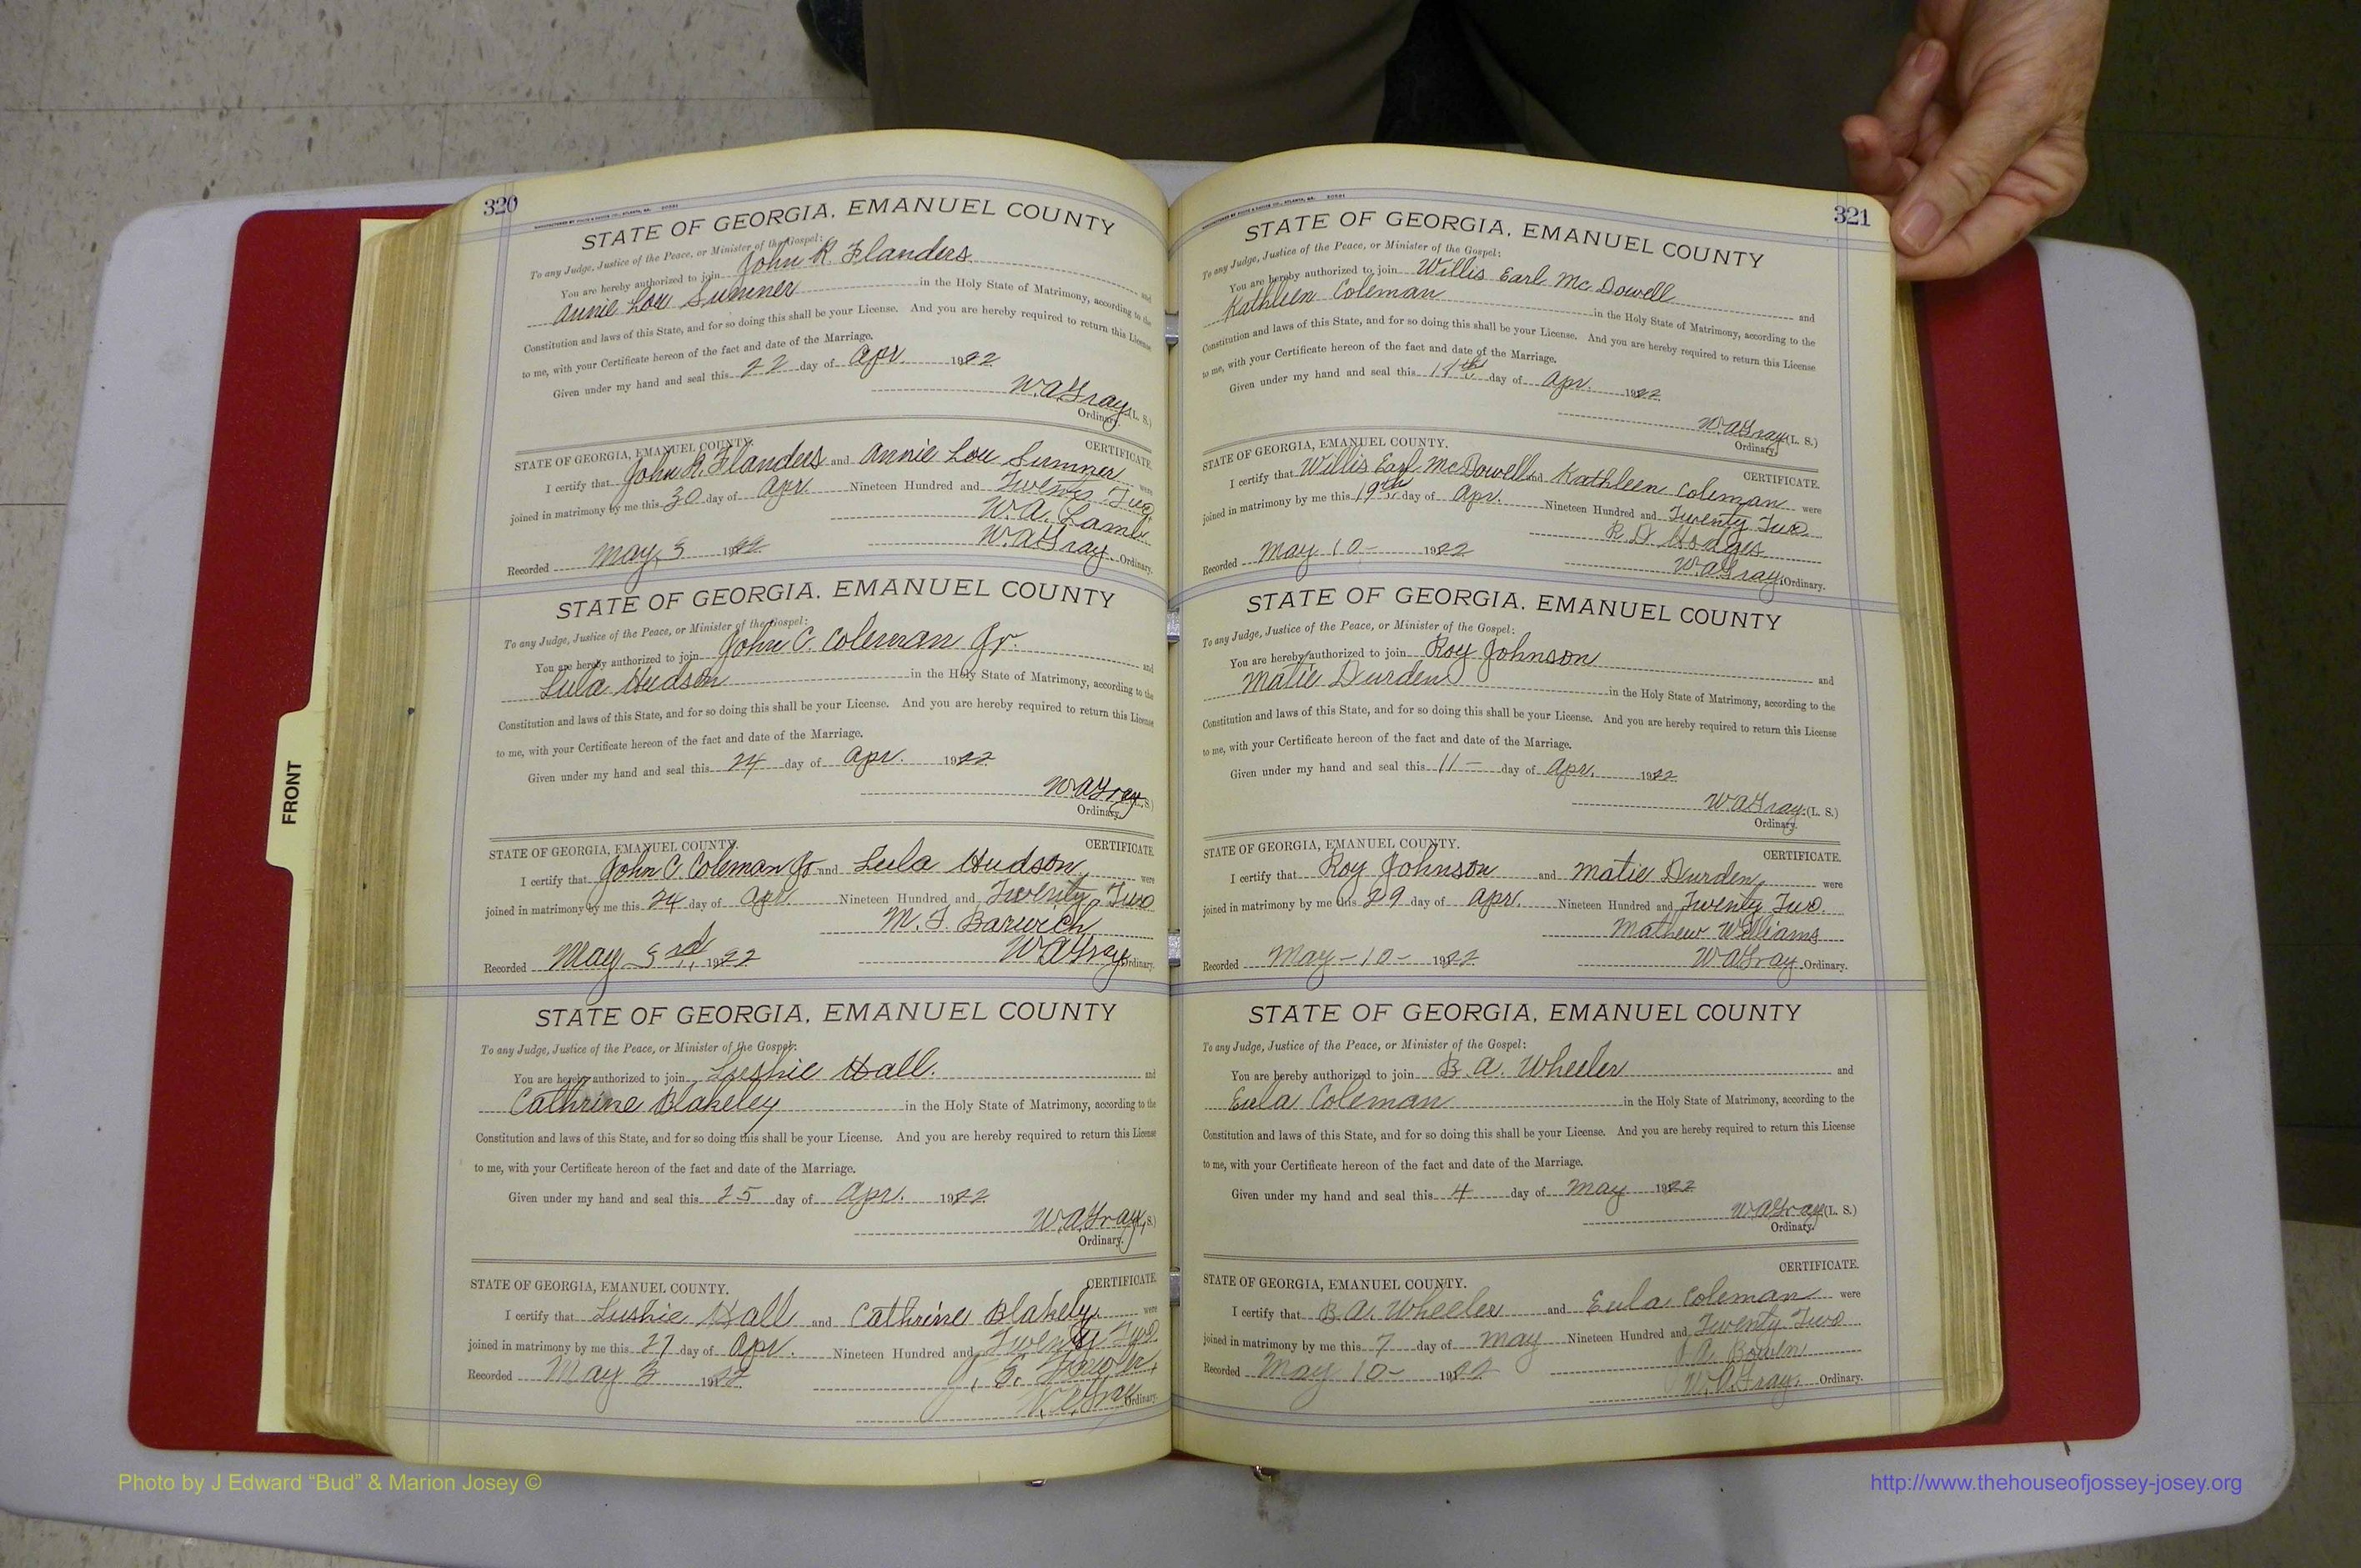 320
STATE OF GEORGIA, EMANUEL COUNTY
To any Judge, Justice of the Peace, or Minister of the Gospel:
You are hereby authorized to join John R. Flanders and
Annie Lou Sumner in the Holy State of Matrimony, according to the
Constitution and laws of this State, and for so doing this shall be your License. And you are hereby required to return this License
to me, with your Certificate hereon of the fact and date of the Marriage.
Given under my hand and seal this 22 day of Apr. 1922
W.A. Gray (L. S.)
Ordinary.
STATE OF GEORGIA, EMANUEL COUNTY. CERTIFICATE.
I certify that John R. Flanders and Annie Lou Sumner were
joined in matrimony by me this 30 day of Apr. Nineteen Hundred and Twenty Two
W.A. Lamb
Recorded May 3 1922 W.A. Gray Ordinary.
STATE OF GEORGIA, EMANUEL COUNTY
To any Judge, Justice of the Peace, or Minister of the Gospel:
You are hereby authorized to join John C. Coleman Jr. and
Lula Hudson in the Holy State of Matrimony, according to the
Constitution and laws of this State, and for so doing this shall be your License. And you are hereby required to return this License
to me, with your Certificate hereon of the fact and date of the Marriage.
Given under my hand and seal this 24 day of Apr. 1922
W.A. Gray (L. S.)
Ordinary.
STATE OF GEORGIA, EMANUEL COUNTY. CERTIFICATE.
I certify that John C. Coleman Jr and Lula Hudson were
joined in matrimony by me this 24 day of Apr. Nineteen Hundred and Twenty Two
M. F. Barwick
Recorded May 3rd 1922 W.A. Gray Ordinary.
STATE OF GEORGIA, EMANUEL COUNTY
To any Judge, Justice of the Peace, or Minister of the Gospel:
You are hereby authorized to join Lushie Hall. and
Cathrine Blakeley in the Holy State of Matrimony, according to the
Constitution and laws of this State, and for so doing this shall be your License. And you are hereby required to return this License
to me, with your Certificate hereon of the fact and date of the Marriage.
Given under my hand and seal this 25 day of Apr. 1922
W.A. Gray (L. S.)
Ordinary.
STATE OF GEORGIA, EMANUEL COUNTY. CERTIFICATE
I certify that Lushie Hall and Cathrine Blakely were
joined in matrimony by me this 27 day of Apr. Nineteen Hundred and Twenty Two
Recorded May 3 1922
Ordinary.
321
STATE OF GEORGIA, EMANUEL COUNTY
To any Judge, Justice of the Peace, or Minister of the Gospel:
You are hereby authorized to join Willis Earl McDowell and
Kathleen Coleman in the Holy State of Matrimony, according to the
Constitution and laws of this State, and for so doing this shall be your License. And you are hereby required to return this License
to me, with your Certificate hereon of the fact and date of the Marriage.
Given under my hand and seal this day of Apr. 1922
W.A. Gray (L. S.)
Ordinary.
STATE OF GEORGIA, EMANUEL COUNTY. CERTIFICATE.
I certify that Willis Earl McDowell and Kathleen Coleman were
joined in matrimony by me this 19th day of Apr. Nineteen Hundred and Twenty Two
R. D. Hodges
Recorded May 10- 1922 W.A. Gray Ordinary.
STATE OF GEORGIA, EMANUEL COUNTY
To any Judge, Justice of the Peace, or Minister of the Gospel:
You are hereby authorized to join Roy Johnson and
Matie Durden in the Holy State of Matrimony, according to the
Constitution and laws of this State, and for so doing this shall be your License. And you are hereby required to return this License
to me, with your Certificate hereon of the fact and date of the Marriage.
Given under my hand and seal this 11- day of Apr. 1922
W.A. Gray (L. S.)
Ordinary.
STATE OF GEORGIA, EMANUEL COUNTY. CERTIFICATE.
I certify that Roy Johnson and Matie Durden were
joined in matrimony by me this 29 day of Apr. Nineteen Hundred and Twenty Two
Mathew Williams
Recorded May-10- 1922 W.A. Gray Ordinary.
STATE OF GEORGIA, EMANUEL COUNTY
To any Judge, Justice of the Peace, or Minister of the Gospel:
You are hereby authorized to join B. A. Wheeler and
Eula Coleman in the Holy State of Matrimony, according to the
Constitution and laws of this State, and for so doing this shall be your License. And you are hereby required to return this License
to me, with your Certificate hereon of the fact and date of the Marriage.
Given under my hand and seal this 4 day of May 1922
W.A. Gray (L. S.)
Ordinary.
STATE OF GEORGIA, EMANUEL COUNTY. CERTIFICATE.
I certify that B. A. Wheeler and Eula Coleman were
joined in matrimony by me this 7 day of May Nineteen Hundred and Twenty Two
A. Bowen
Recorded May 10- 1922 W.A. Gray. Ordinary.
FRONT
Photo by J Edward “Bud” & Marion Josey ©
http://www.thehouseofjossey-josey.org